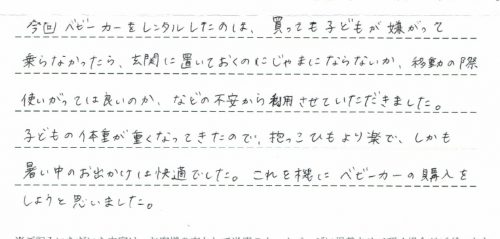 今回 ベビーカーをレンタルしたのは、買っても子どもが嫌がって
乗らなかったら、玄関に置いておくのにじゃまにならないか、移動の際
使いがっては良いのか、などの不安から利用させていただきました。
子どもの体重が重くなってきたので、抱っこひもより楽で、しかも
暑い中のお出かけは快適でした。これを機にベビーカーの購入を
しようと思いました。